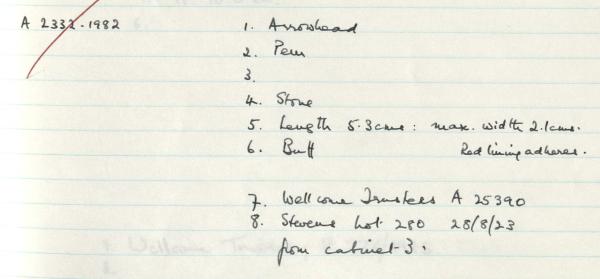 A 2332.1982 1. Arrowhead
2. Peru
3.
4. Stone
5. Length 5.3cms: max. width 2.1cms.
6. Buff Red lining adheres.
7. Wellcome Trustees A 25390
8. Stevens Lot 280 28/8/23
from cabinet 3.